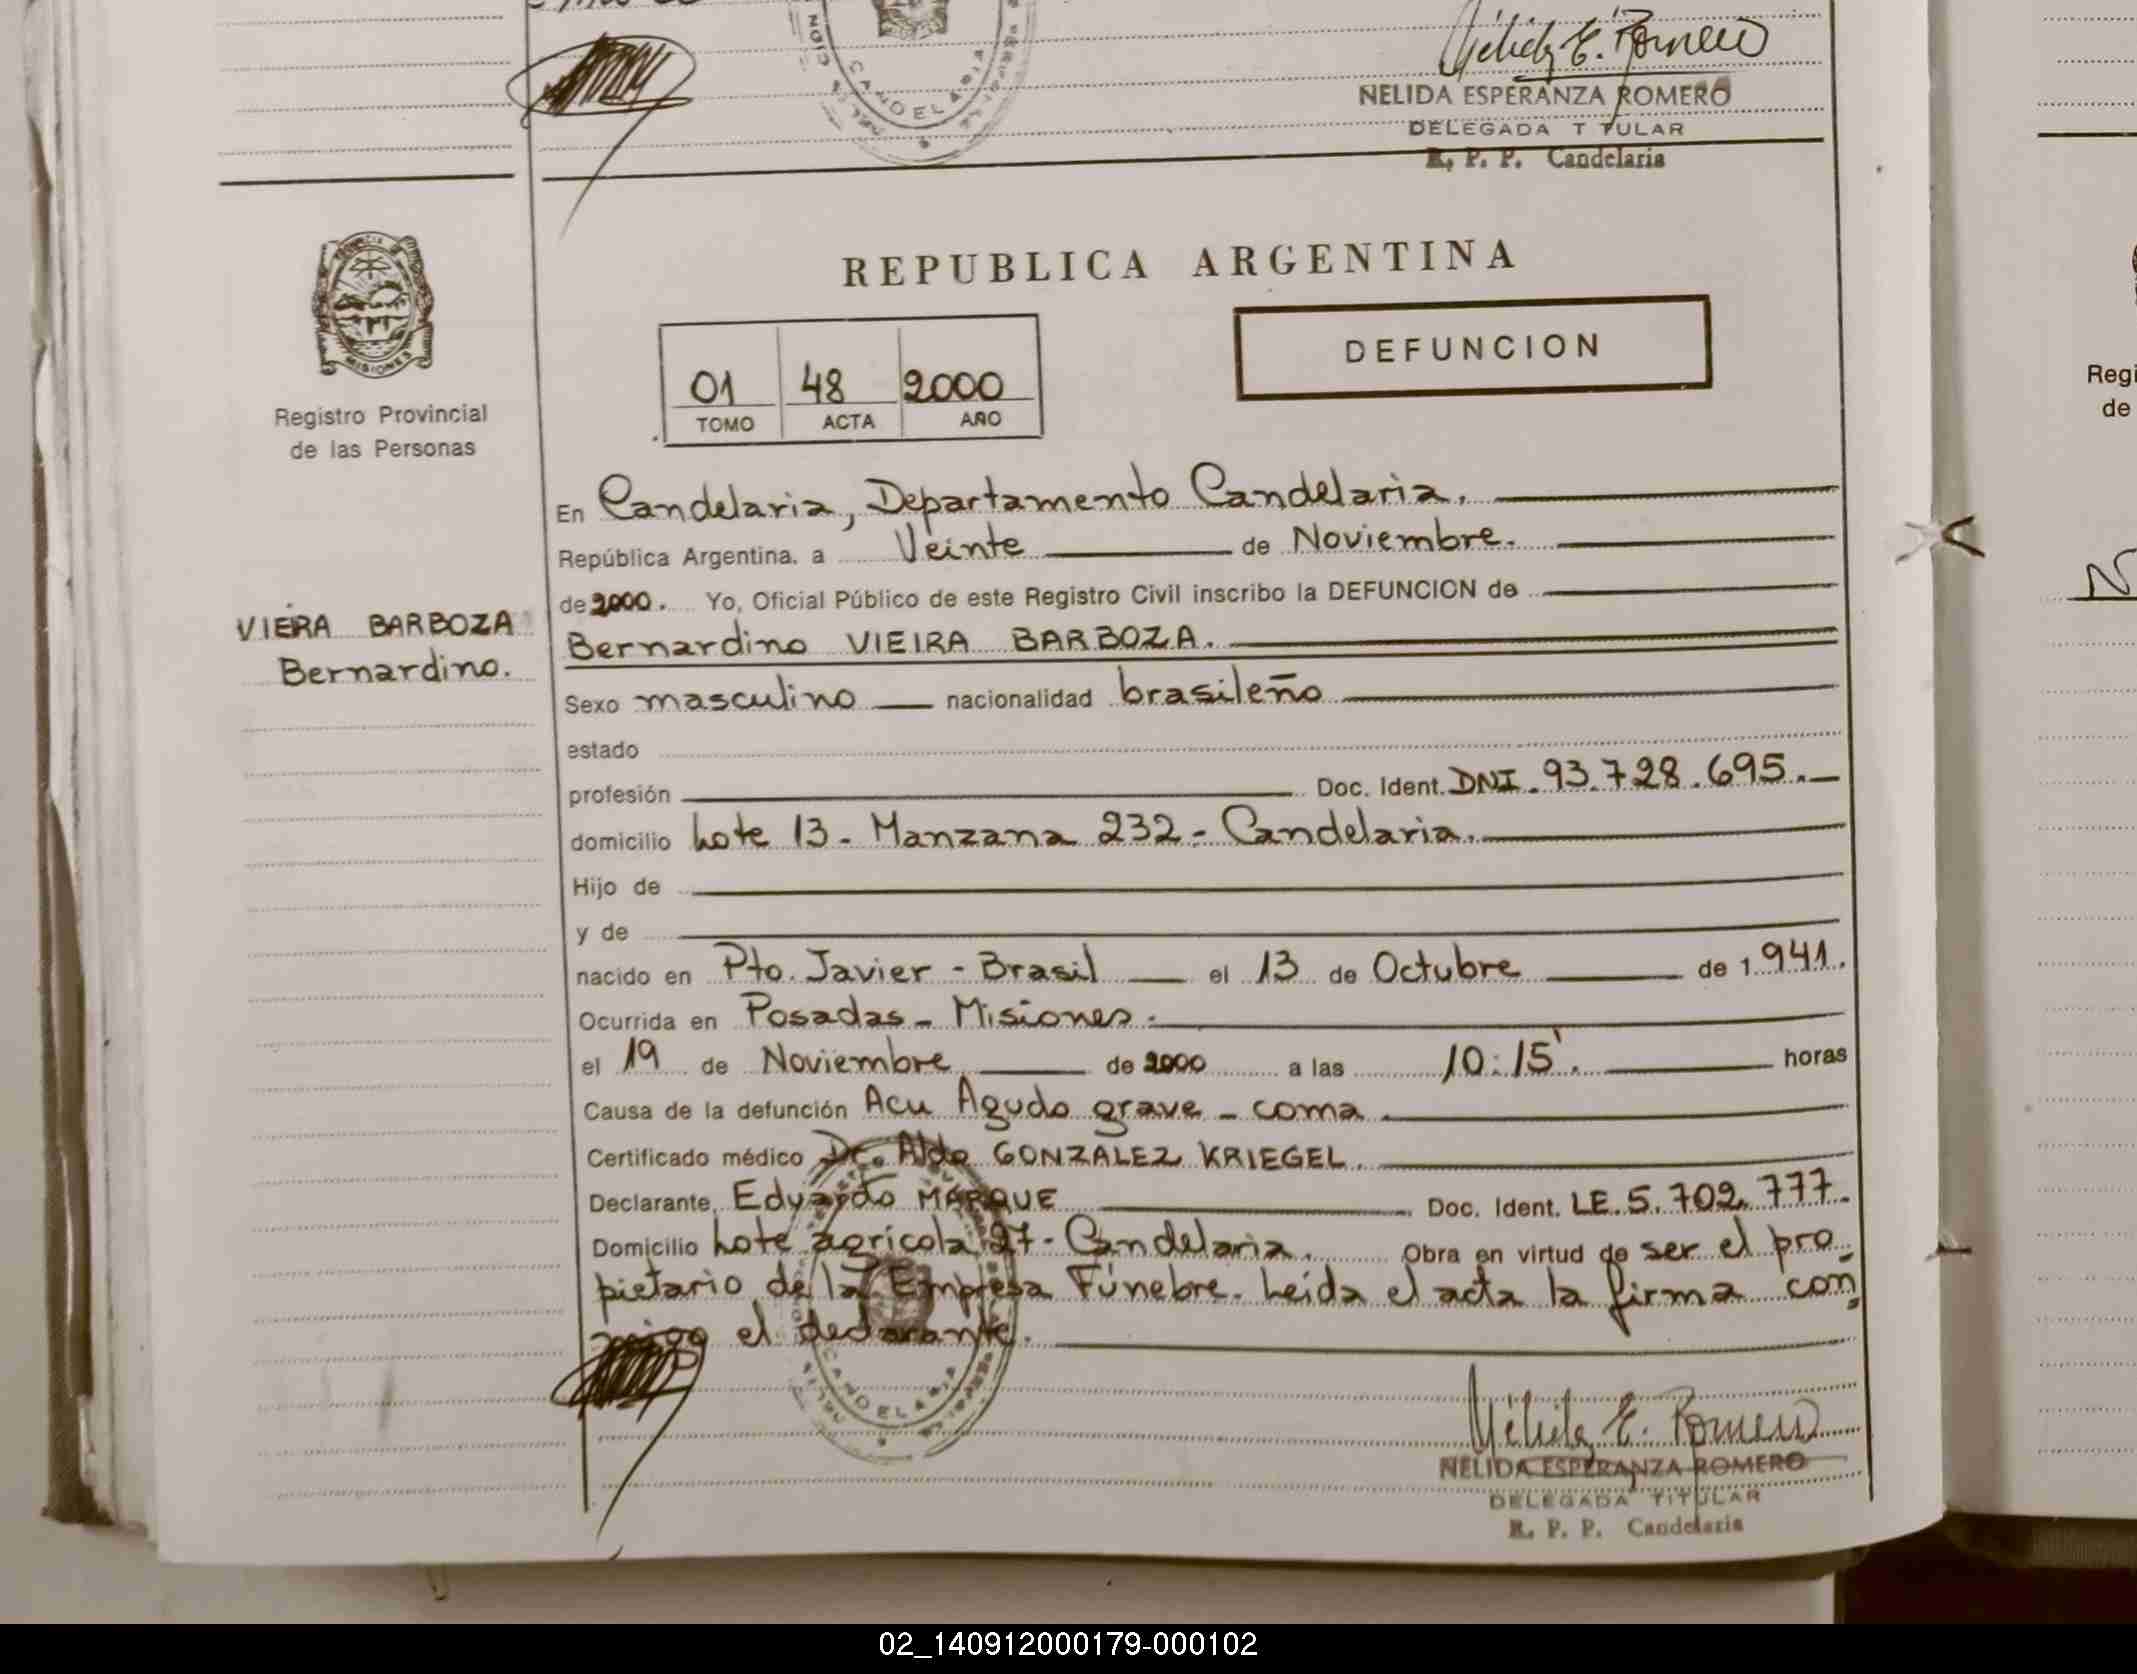 Nélida E. Romero
NELIDA ESPERANZA ROMERO
DELEGADA TITULAR
R. P. P. Candelaria
CANDELARIA
MISIONES
Registro Provincial
de las Personas
REPUBLICA ARGENTINA
DEFUNCION
01 48 2000
TOMO ACTA AÑO
En Candelaria, Departamento Candelaria.
República Argentina, a Veinte de Noviembre.
de 2000. Yo, Oficial Público de este Registro Civil inscribo la DEFUNCION de
VIEIRA BARBOZA
Bernardino.
Bernardino VIEIRA BARBOZA.
Sexo masculino nacionalidad brasileño
estado
profesión Doc. Ident. DNI. 93.728.695.
domicilio Lote 13 - Manzana 232 - Candelaria.
Hijo de
y de
nacido en Pto. Javier - Brasil el 13 de Octubre de 1 941.
Ocurrida en Posadas - Misiones.
el 19 de Noviembre de 2000 a las 10:15'. horas
Causa de la defunción Acu Agudo grave - coma
Certificado médico Dr. Aldo GONZALEZ KRIEGEL.
Declarante, Eduardo MARQUE Doc. Ident. LE. 5.702.777.
Domicilio Lote agricola 27 - Candelaria. Obra en virtud de ser el pro-
pietario de la Empresa Fúnebre. Leída el acta la firma con-
migo el declarante.
CANDELARIA
Nélida E. Romero
NELIDA ESPERANZA ROMERO
DELEGADA TITULAR
R. P. P. Candelaria
Regi
de
N
02_140912000179-000102